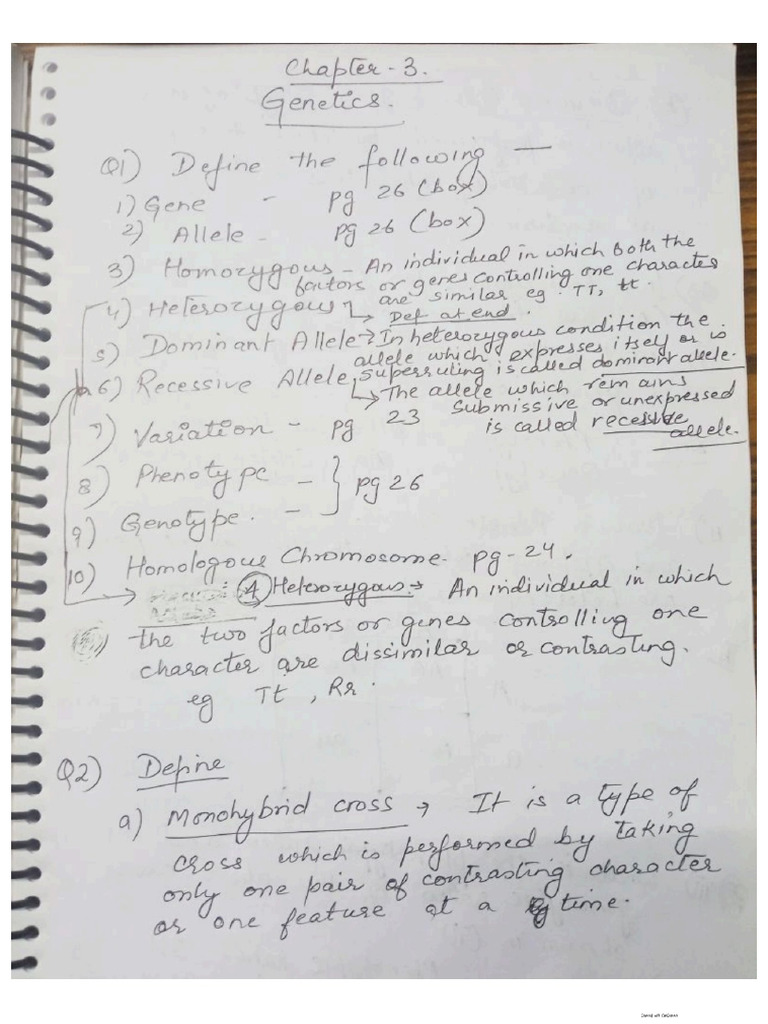 Chapter-3.
Genetics.
Q1) Define the following —
1) Gene - pg 26 (box)
2) Allele - pg 26 (box)
3) Homozygous - An individual in which both the
factors or genes controlling one character
are similar eg. TT, tt.
4) Heterozygous → Def at end.
5) Dominant Allele → In heterozygous condition the
allele which expresses itself or is
superruling is called dominant allele.
6) Recessive Allele → The allele which remains
submissive or unexpressed
is called recessive
allele.
7) Variation - pg 23
8) Phenotype - } pg 26
9) Genotype. -
10) Homologous Chromosome. pg-24.
→ 4 Heterozygous → An individual in which
the two factors or genes controlling one
character are dissimilar or contrasting.
eg Tt, Rr.
Q2) Define
a) Monohybrid cross → It is a type of
cross which is performed by taking
only one pair of contrasting character
or one feature at a time.